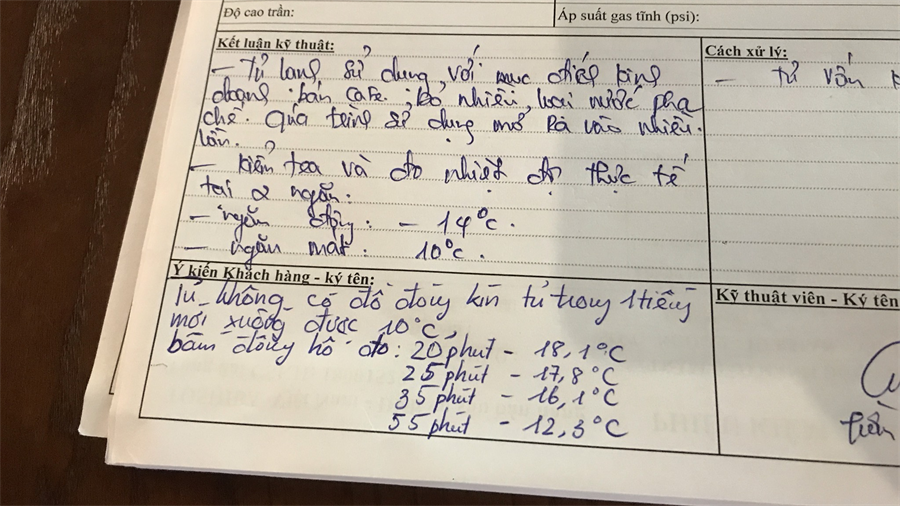 Độ cao trần:
Áp suất gas tĩnh (psi):
Kết luận kỹ thuật:
Cách xử lý:
- Tủ lạnh sử dụng với mục đích kinh
doanh bán cafe, bỏ nhiều loại nước pha
chế. Quá trình sử dụng mở ra vào nhiều
lần.
- Kiểm tra và đo nhiệt độ thực tế
tại 2 ngăn:
- ngăn đông: - 14°C.
- ngăn mát: 10°C.
- Tư vấn
Ý kiến Khách hàng - ký tên:
Kỹ thuật viên - Ký tên
Tủ không có đồ đóng kín tủ trong 1 tiếng
mới xuống được 10°C
bấm đồng hồ đo: 20 phút - 18,1°C
25 phút - 17,8°C
35 phút - 16,1°C
55 phút - 12,3°C